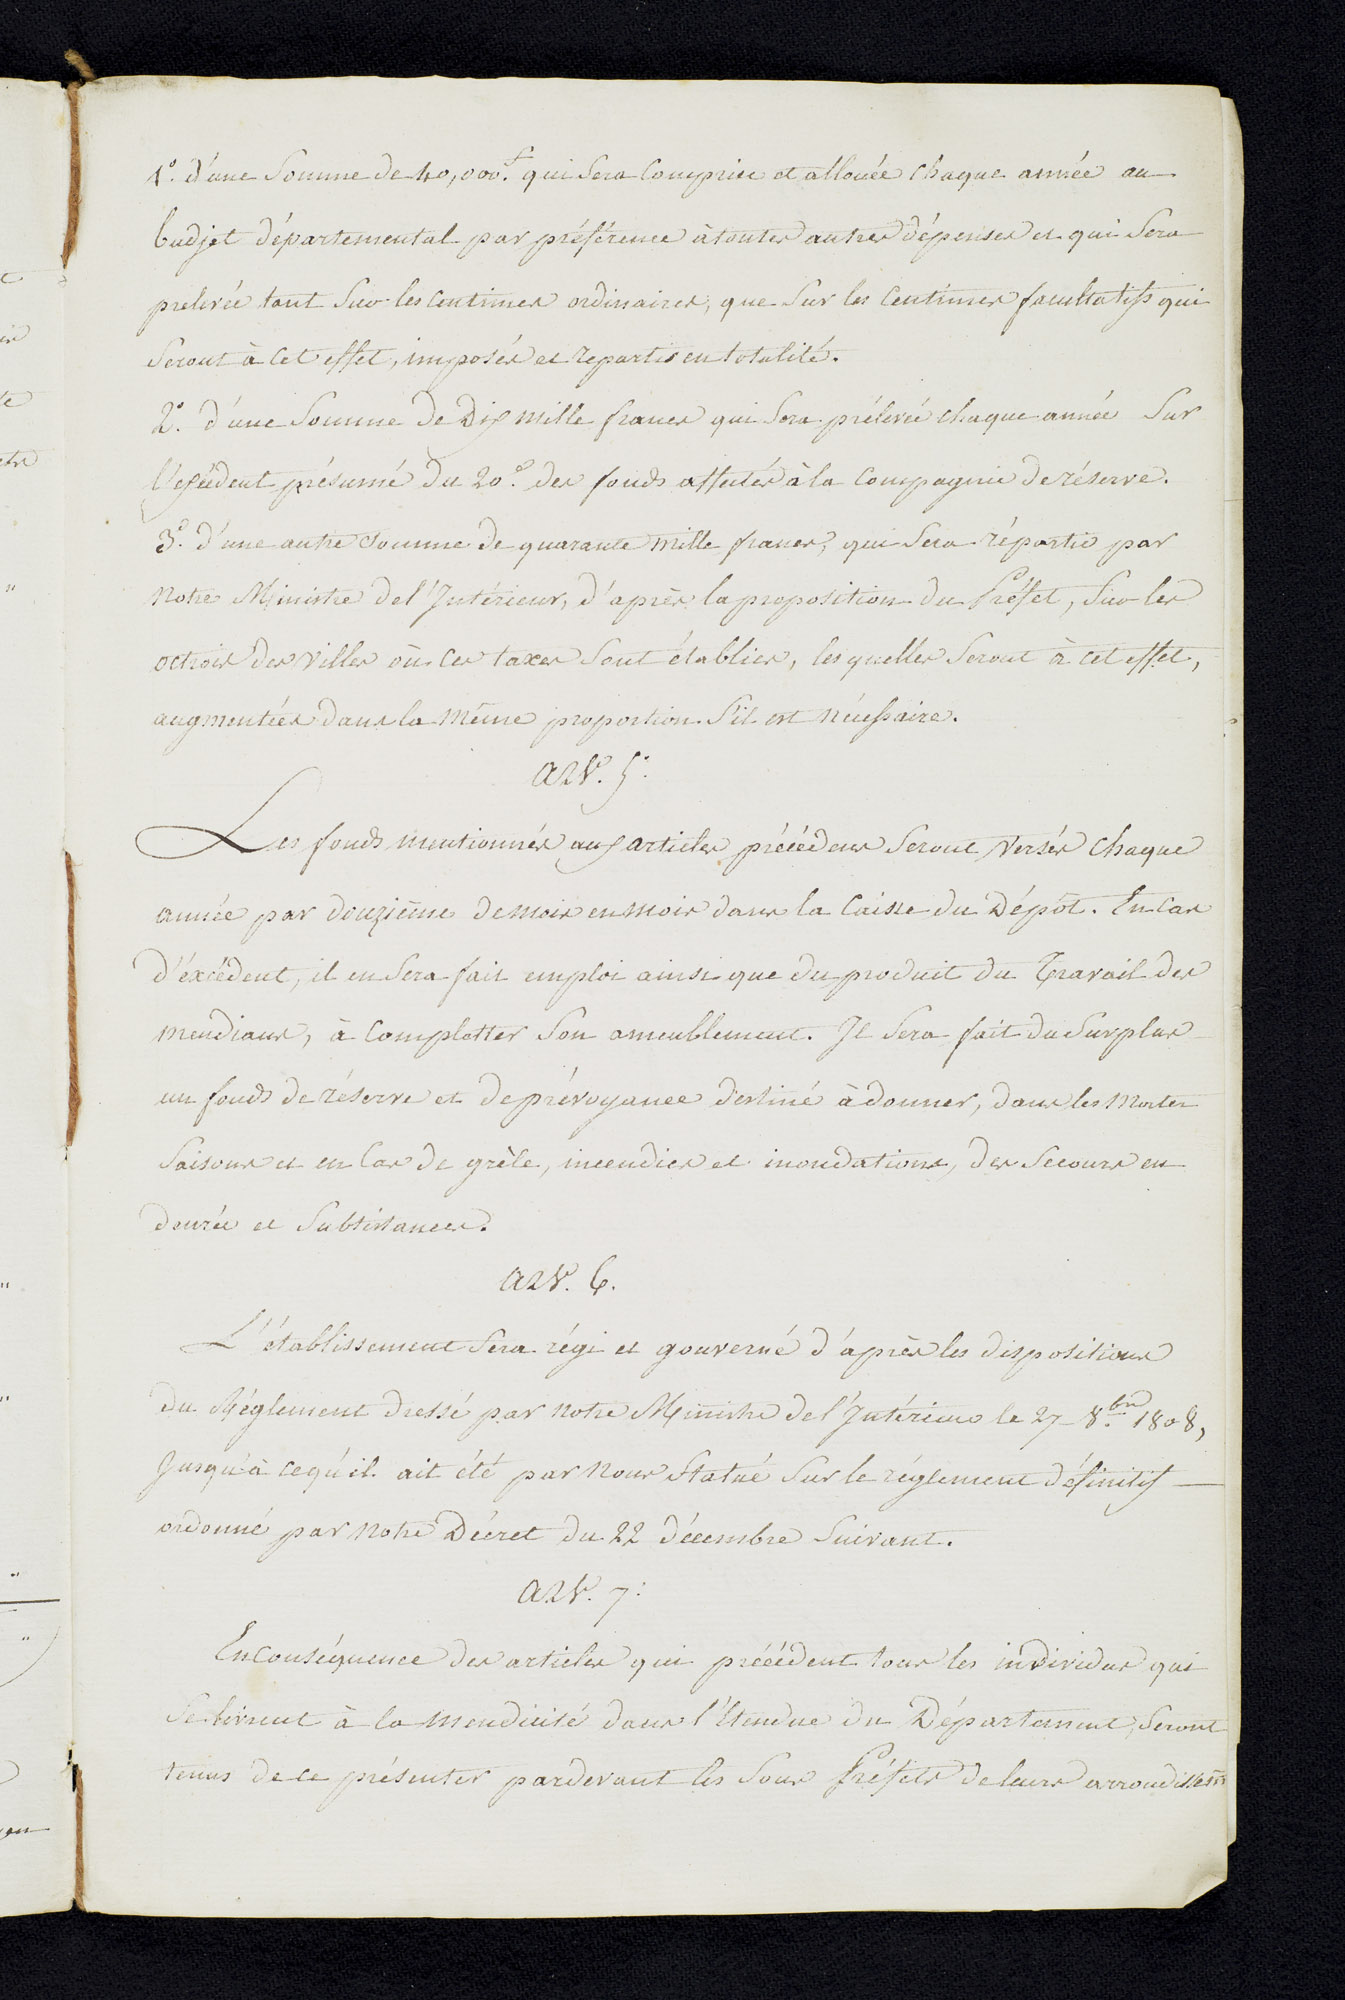 1.° d'une Somme de 40,000.f qui Sera Comprise et allouée chaque année au
budjet départemental par préférence à toutes autres dépenses et qui Sera
prelevée tant Sur les Centimes ordinaires, que Sur les Centimes facultatifs qui
Seront à Cet effet, imposés et repartis en totalité.
2.° d'une Somme de Dix Mille francs qui Sera prélevée chaque année Sur
l'excédent présumé du 20.e des fonds affectés à la Compagnie de réserve.
3.° d'une autre Somme de quarante Mille francs, qui Sera répartie par
Notre Ministre de l'Intérieur, d'après la proposition du Préfet, Sur les
octrois des Villes où Ces taxes Sont établies, lesquelles Seront à cet effet,
augmentées dans la Même proportion S'il est Nécessaire.
Art. 5.
Les fonds mentionnés aux articles précédens Seront Versés Chaque
année par douzième de Mois en Mois dans la Caisse du Dépôt. En Cas
d'éxcédent, il en Sera fait emploi ainsi que du produit du Travail des
Mendians, à Completter Son ameublement. Il Sera fait du Surplus
un fonds de réserve et de prévoyance destiné à donner, dans les Mortes
Saisons et en Cas de grèle, incendies et inondations, des Secours en
denrée et Subsistances.
Art. 6.
L'établissement Sera régi et gouverné d'après les dispositions
du Réglement dressé par Notre Ministre de l'Intérieur le 27 8.bre 1808,
Jusqu'à cequ'il ait été par Nous Statué Sur le réglement définitif
ordonné par Notre Décret du 22 décembre Suivant.
Art. 7.
En Conséquence des articles qui précédent tous les individus qui
Se livrent à la Mendicité dans l'Etendue du Département, Seront
tenus de ce présenter pardevant les Sous Préfets de leurs arrondissemts